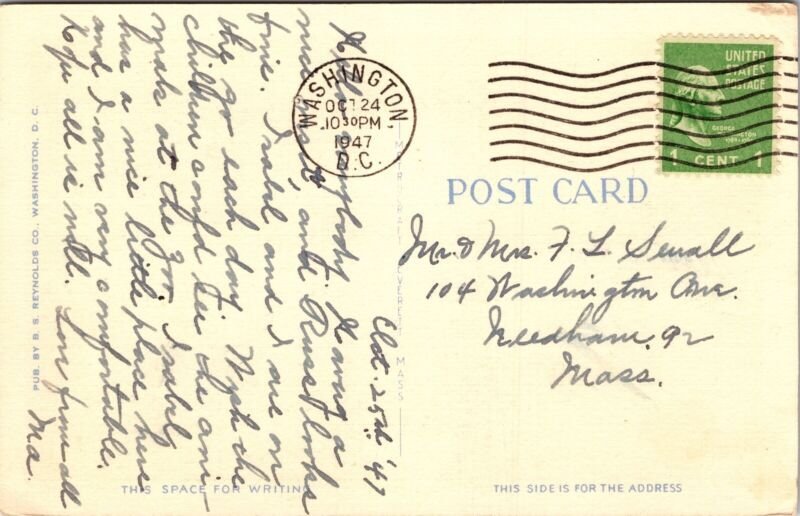 WASHINGTON
OCT 24
10 30 PM
1947
D.C.
UNITED
STATES
POSTAGE
GEORGE
WASHINGTON
1 CENT 1
POST CARD
Mr. & Mrs. F. L. Sewall
104 Washington Ave.
Needham, 92
Mass.
THIS SIDE IS FOR THE ADDRESS
EVERETT MASS
Oct. 25th '47
Hello everybody. Having a
nice visit, and Russ looks
fine. Isabel and I are on
the go each day. Wish the
children could see the ani-
mals at the zoo. Isabel
has a nice little place here
and I am very comfortable.
Hope all is well. Love from all
Ma.
THIS SPACE FOR WRITING
PUB. BY B. S. REYNOLDS CO., WASHINGTON, D. C.